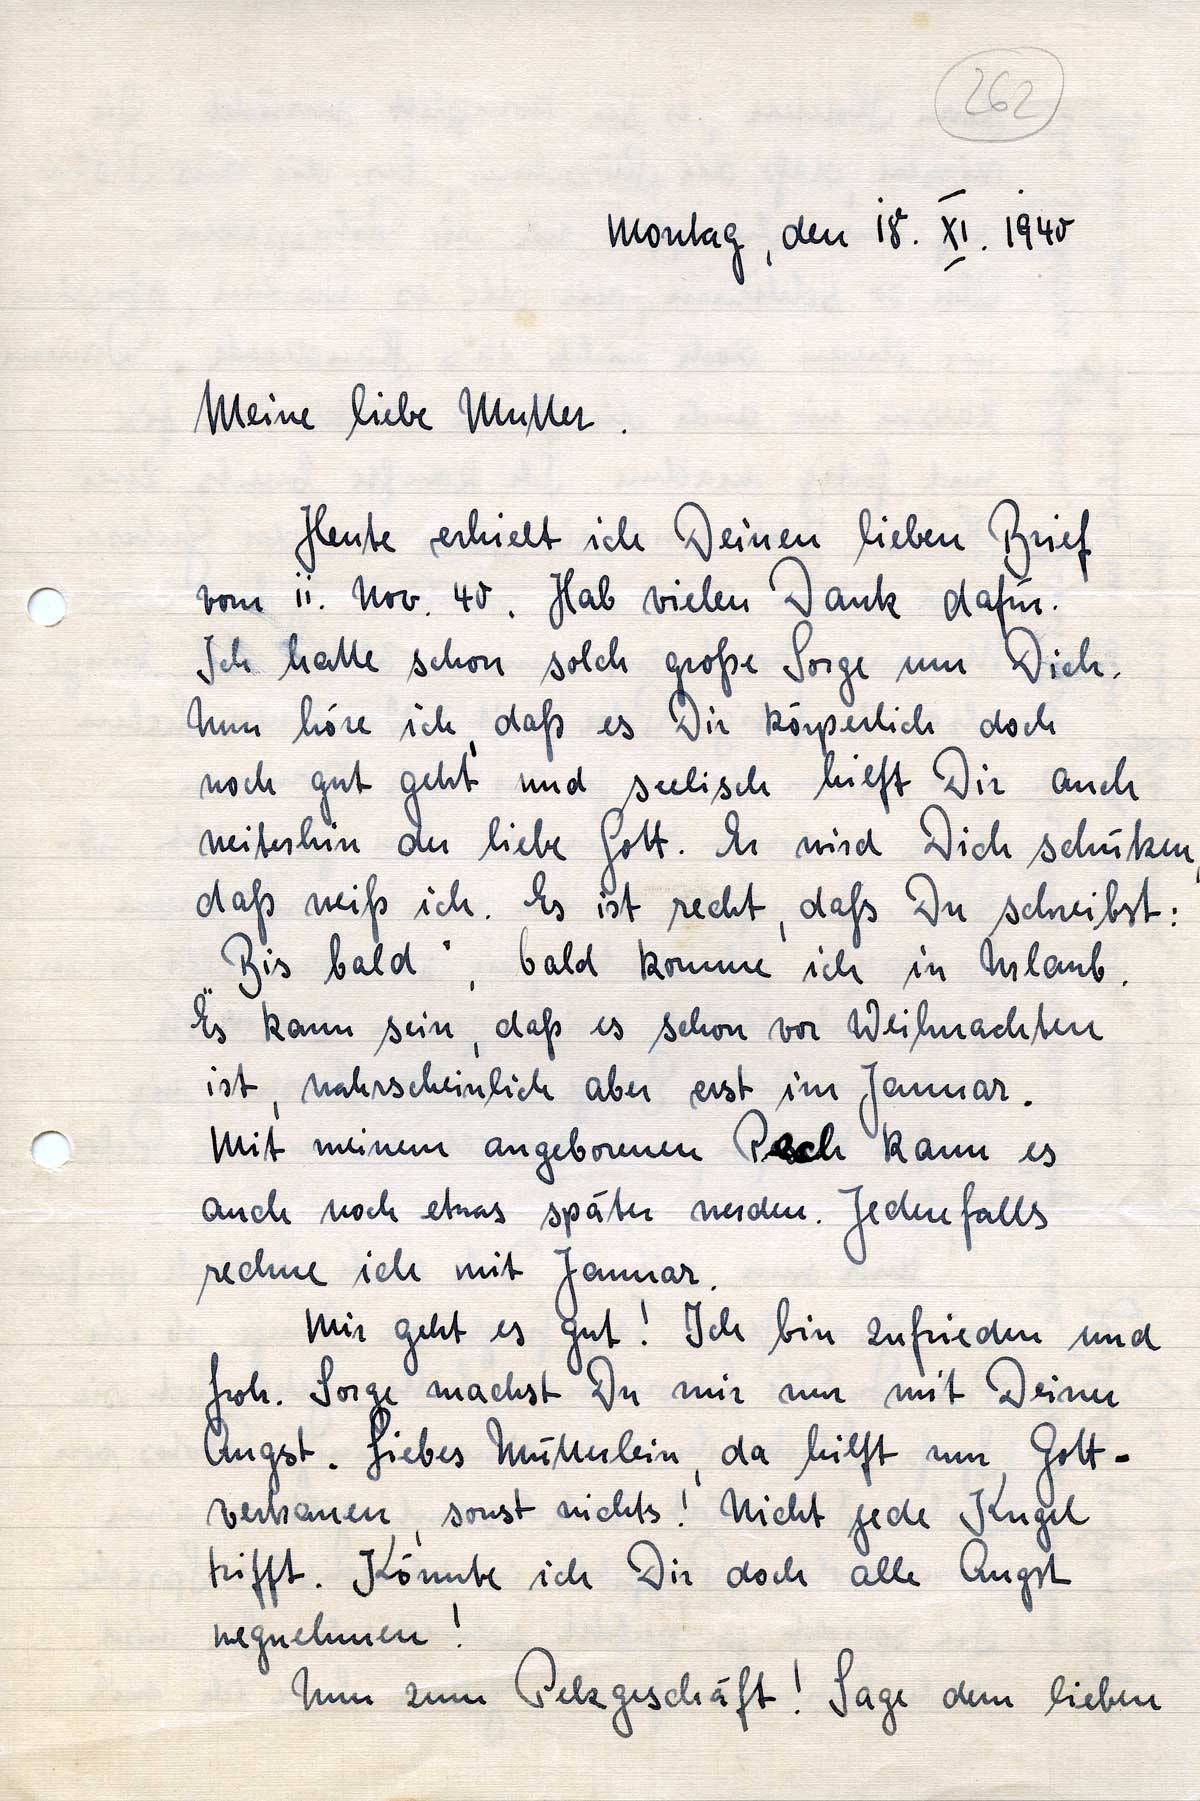 262
Montag, den 18. XI. 1940
Meine liebe Mutter.
Heute erhielt ich Deinen lieben Brief
vom 11. Nov. 40. Hab vielen Dank dafür.
Ich hatte schon solch große Sorge um Dich.
Nun höre ich, daß es Dir körperlich doch
noch gut geht und seelisch hilft Dir auch
weiterhin der liebe Gott. Er wird Dich schützen,
daß weiß ich. Es ist recht, daß Du schreibst:
„Bis bald", bald komme ich in Urlaub.
Es kann sein, daß es schon vor Weihnachten
ist, wahrscheinlich aber erst im Januar.
Mit meinem angeborenen Pech kann es
auch noch etwas später werden. Jedenfalls
rechne ich mit Januar.
Mir geht es gut! Ich bin zufrieden und
froh. Sorge machst Du mir nur mit Deiner
Angst. Liebes Mütterlein, da hilft nur Gott-
vertrauen, sonst nichts! Nicht jede Kugel
trifft. Könnte ich Dir doch alle Angst
wegnehmen!
Nun zum Pelzgeschäft! Sage dem lieben